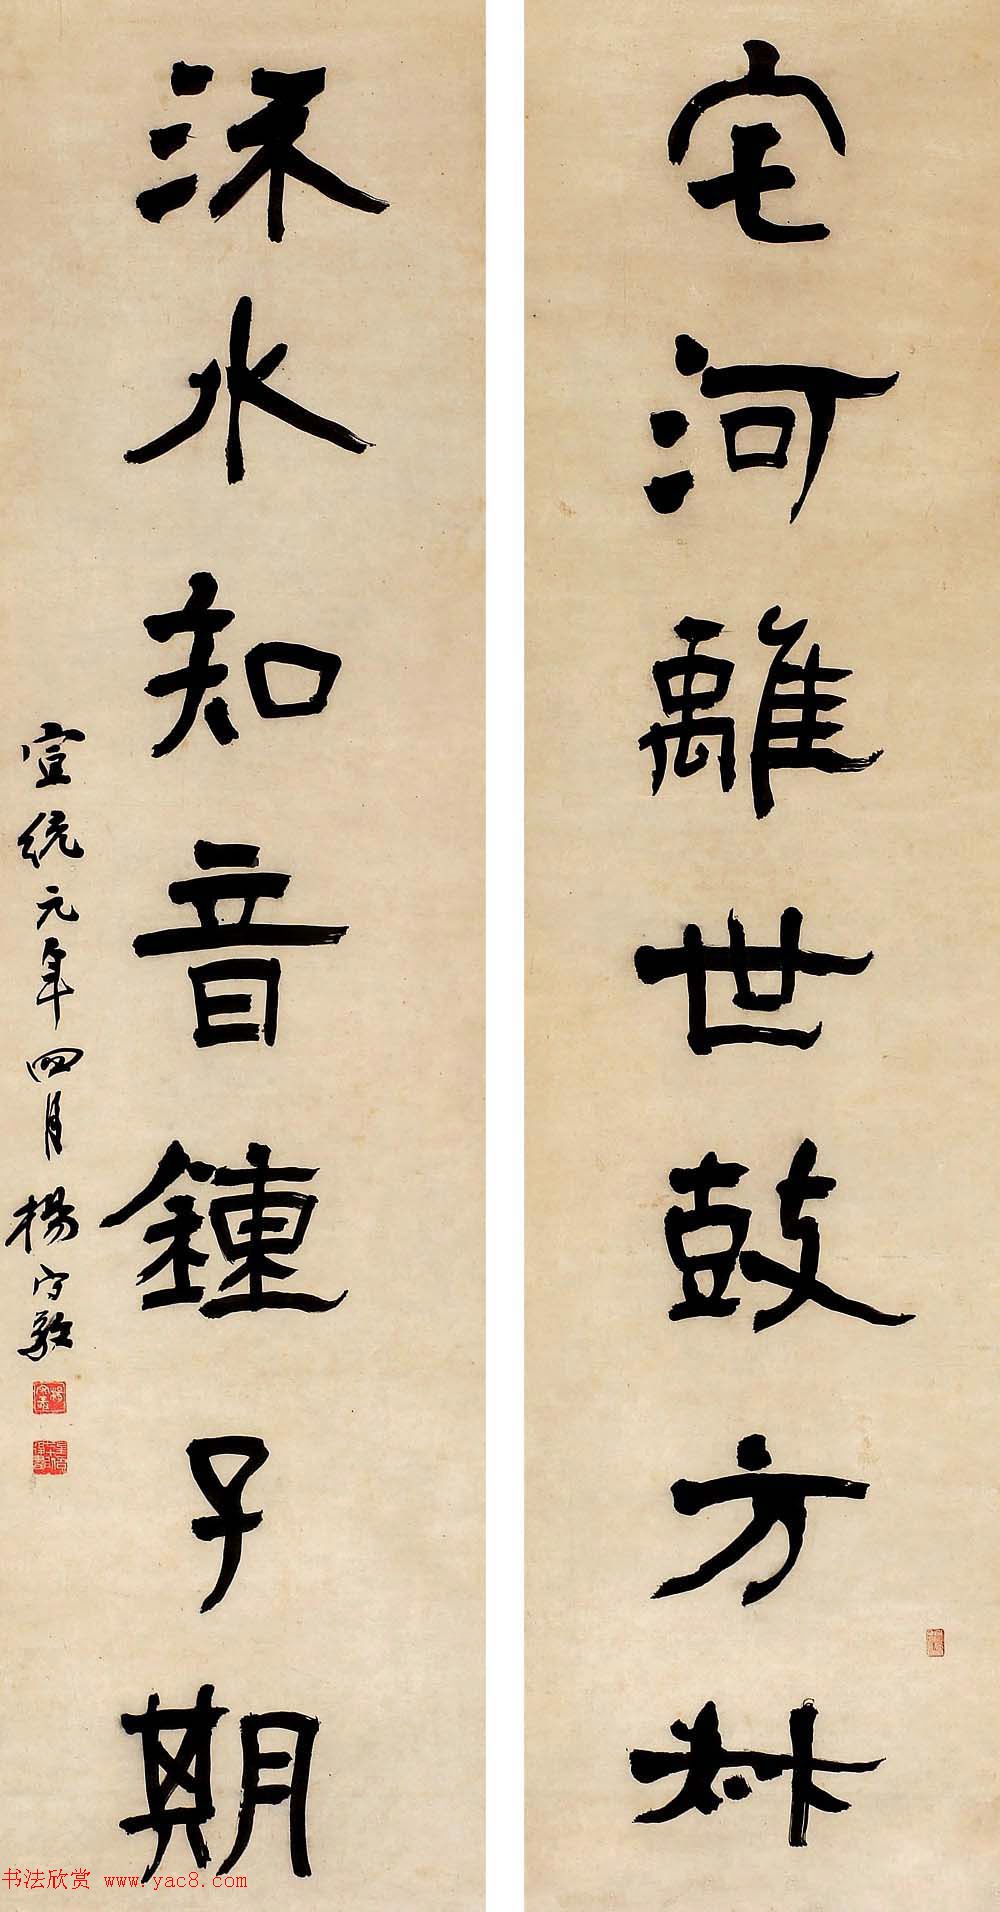 宅河離世鼓方叔
流水知音鍾子期
宣統元年四月楊守敬
书法欣赏 www.yac8.com